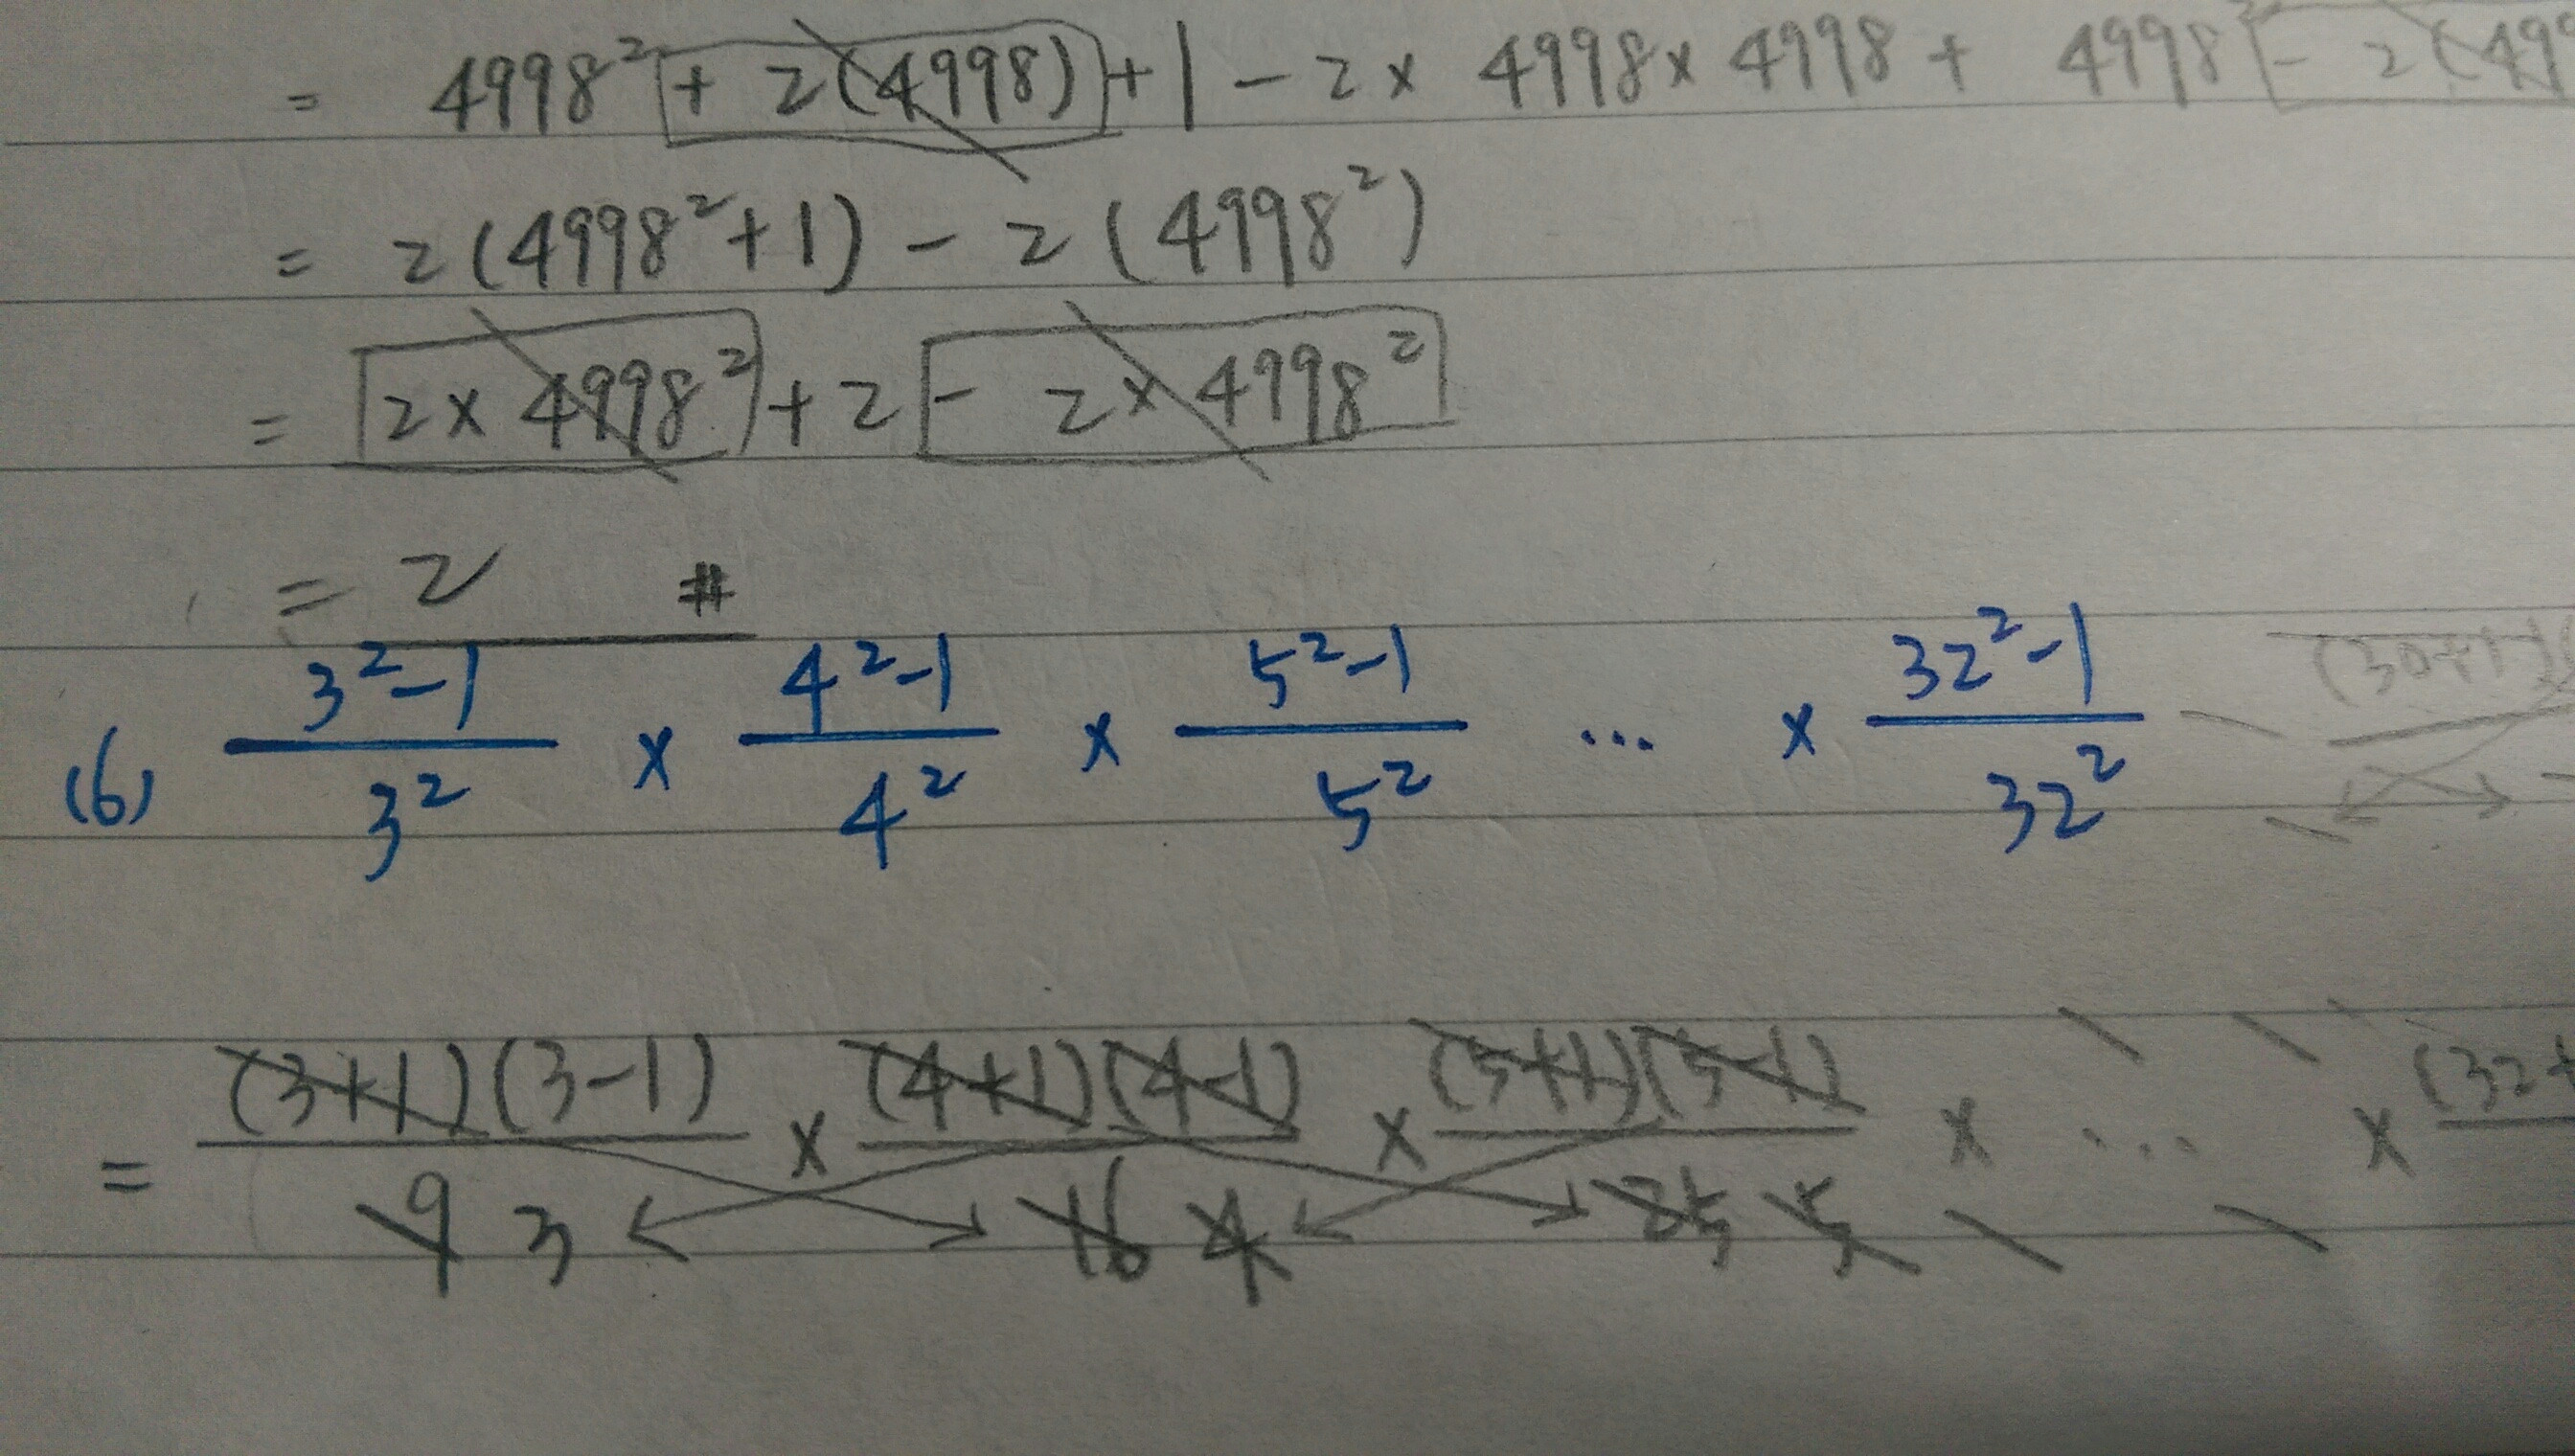 = 4998² + 2(4998) + 1 - 2 × 4998 × 4998 + 4998² - 2(499
= 2(4998² + 1) - 2(4998²)
= 2 × 4998² + 2 - 2 × 4998²
= 2 #
(6) 3²-1/3² × 4²-1/4² × 5²-1/5² ... × 32²-1/32² (30+1)(
= (3+1)(3-1)/9 3 × (4+1)(4-1)/16 4 × (5+1)(5-1)/25 5 × ... × (32+